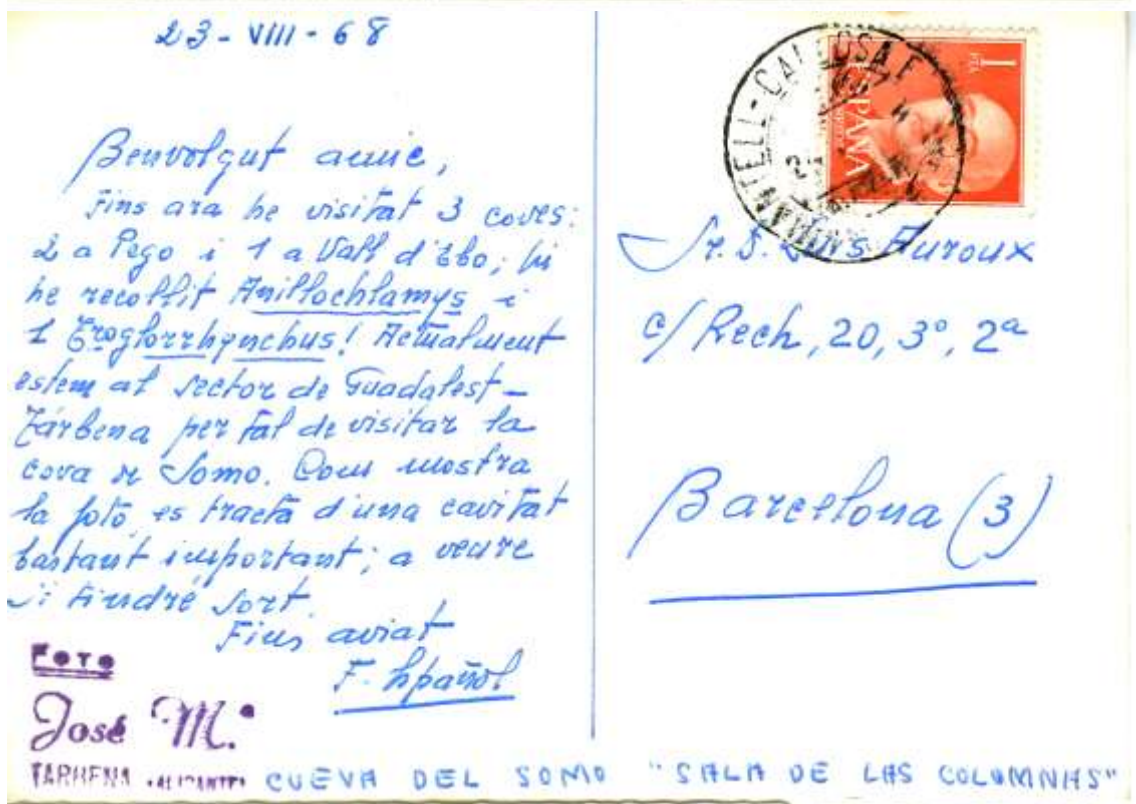 23-VIII-68
Benvolgut amic,
Fins ara he visitat 3 coves:
2 a Pego i 1 a Vall d'Ebo; hi
he recollit Anillochlamys i
1 Troglorrhynchus! Actualment
estem al sector de Guadalest-
Tárbena per tal de visitar la
cova de Somo. Com mostra
la foto, es tracta d'una cavitat
bastant important; a veure
si tindré sort.
Fins aviat
F. Español
FOTO
José M.ª
TARBENA (ALICANTE)
CUEVA DEL SOMO "SALA DE LAS COLOMNAS"
1 PTA
ESPAÑA
CALLOSA
Sr. D. Lluís Auroux
c/ Rech, 20, 3º, 2ª
Barcelona (3)